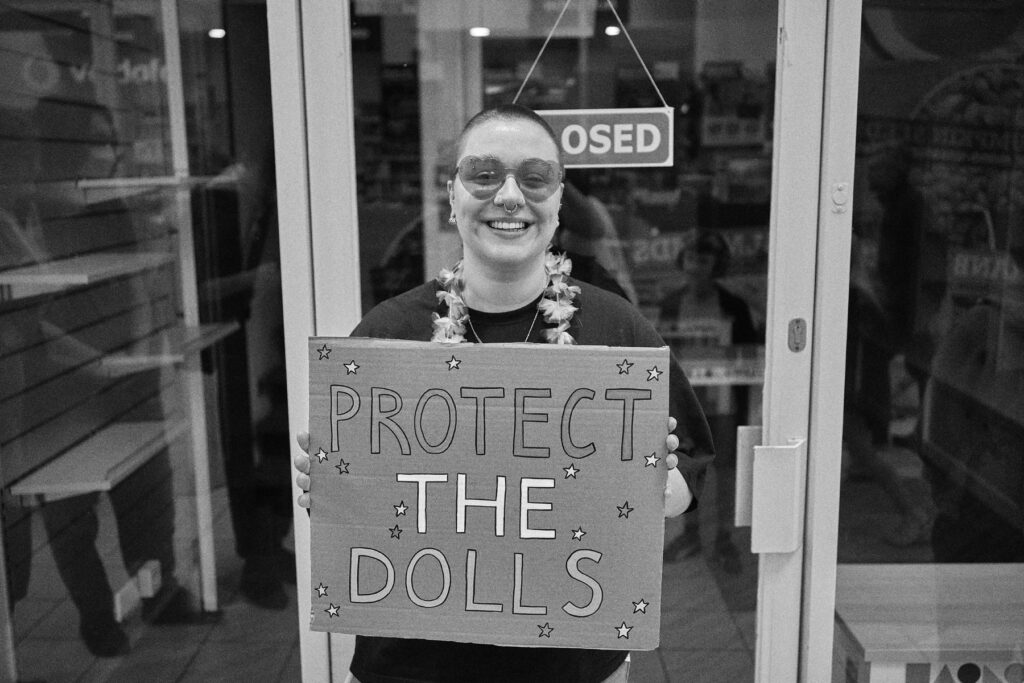 OSED
PROTECT
THE
DOLLS